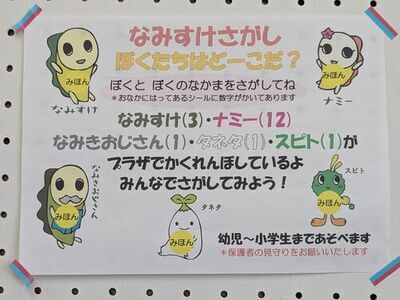 なみすけさがし
ぼくたちはどーこだ？
ぼくと ぼくのなかまをさがしてね
*おなかにはってあるシールに数字がかいてあります
みほん
なみすけ
みほん
ナミー
なみすけ(3)・ナミー(12)
なみきおじさん(1)・タネタ(1)・スピト(1)が
プラザでかくれんぼしているよ
みんなでさがしてみよう！
みほん
なみきおじさん
タネタ
みほん
スピト
みほん
幼児～小学生まであそべます
*保護者の見守りをお願いいたします